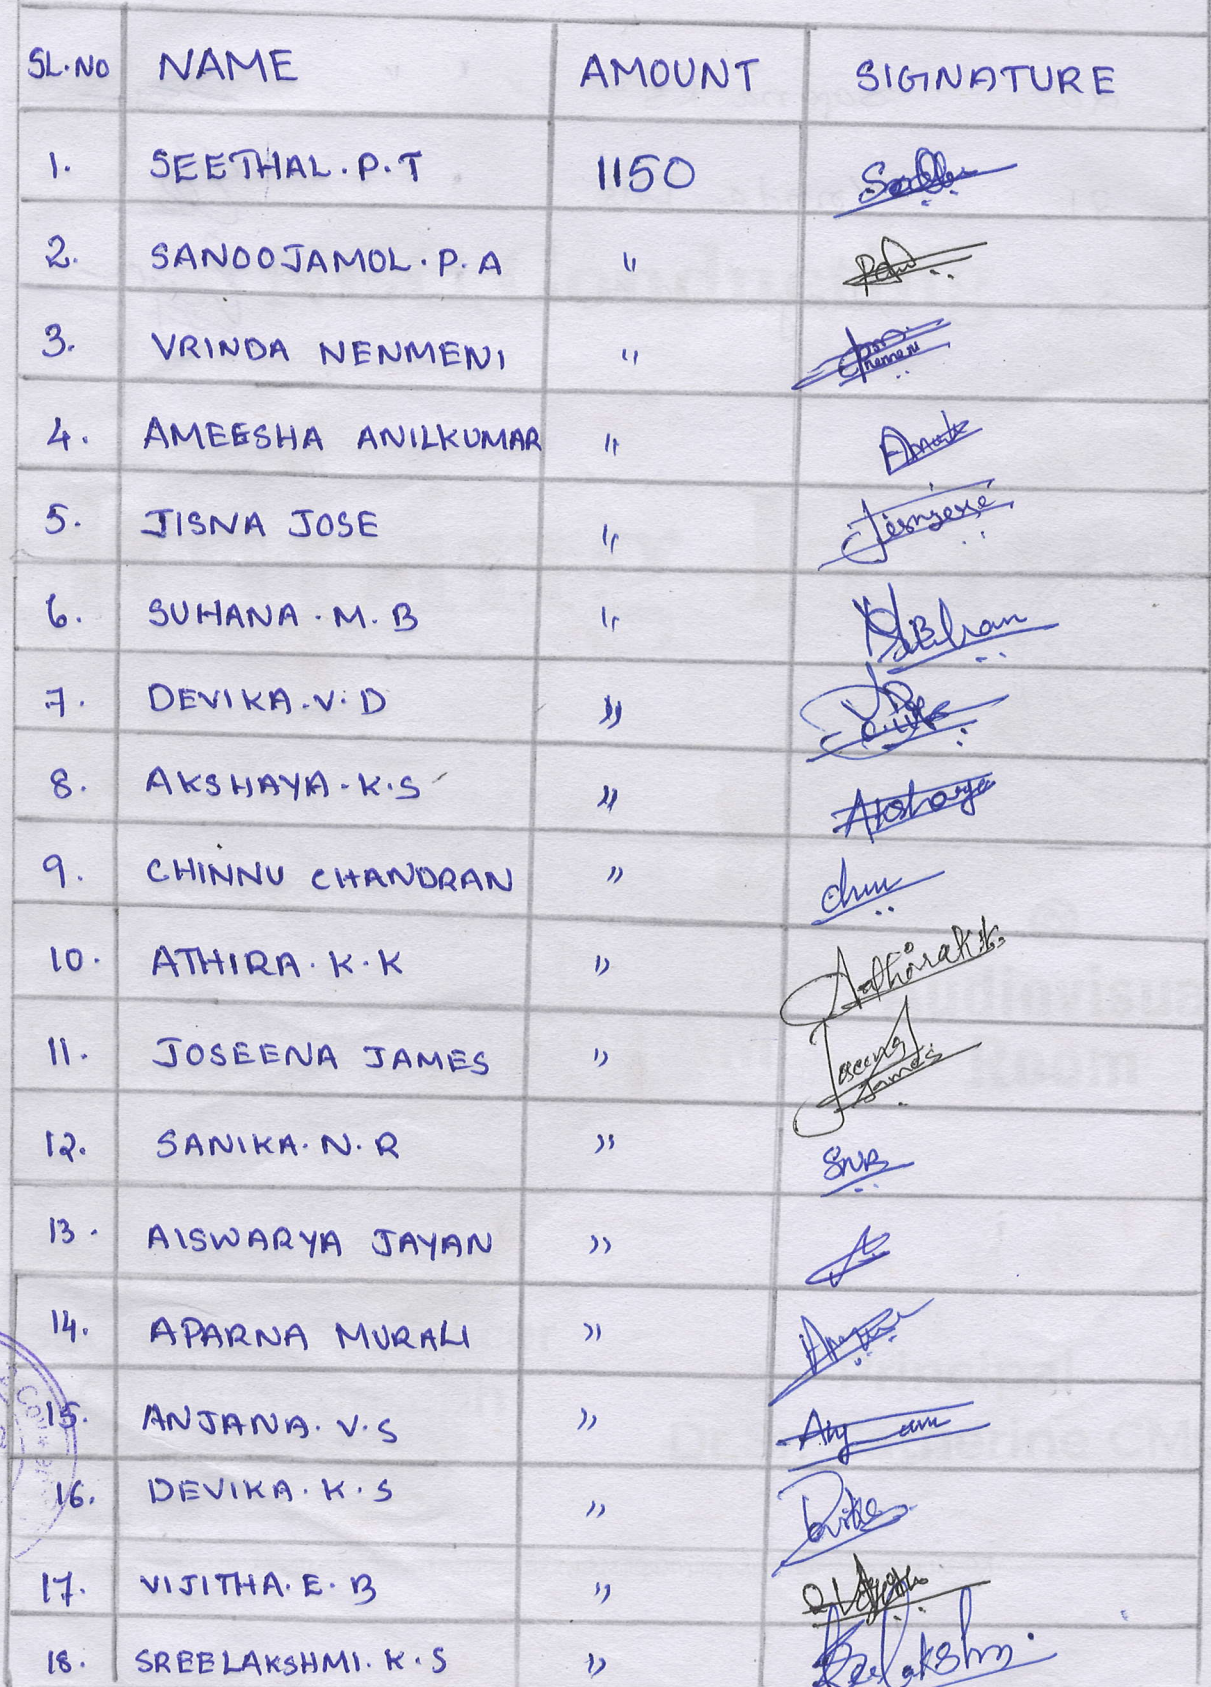 SL.NO NAME AMOUNT SIGNATURE
1. SEETHAL.P.T 1150
2. SANOOJAMOL.P.A "
3. VRINDA NENMENI "
4. AMEESHA ANILKUMAR "
5. JISNA JOSE "
6. SUHANA.M.B "
7. DEVIKA.V.D "
8. AKSHAYA.K.S " Akshaya
9. CHINNU CHANDRAN "
10. ATHIRA.K.K " Athirakk
11. JOSEENA JAMES " Joseena James
12. SANIKA.N.R " SNR
13. AISWARYA JAYAN "
14. APARNA MURALI "
15. ANJANA.V.S "
16. DEVIKA.K.S "
17. VIJITHA.E.B "
18. SREELAKSHMI.K.S "